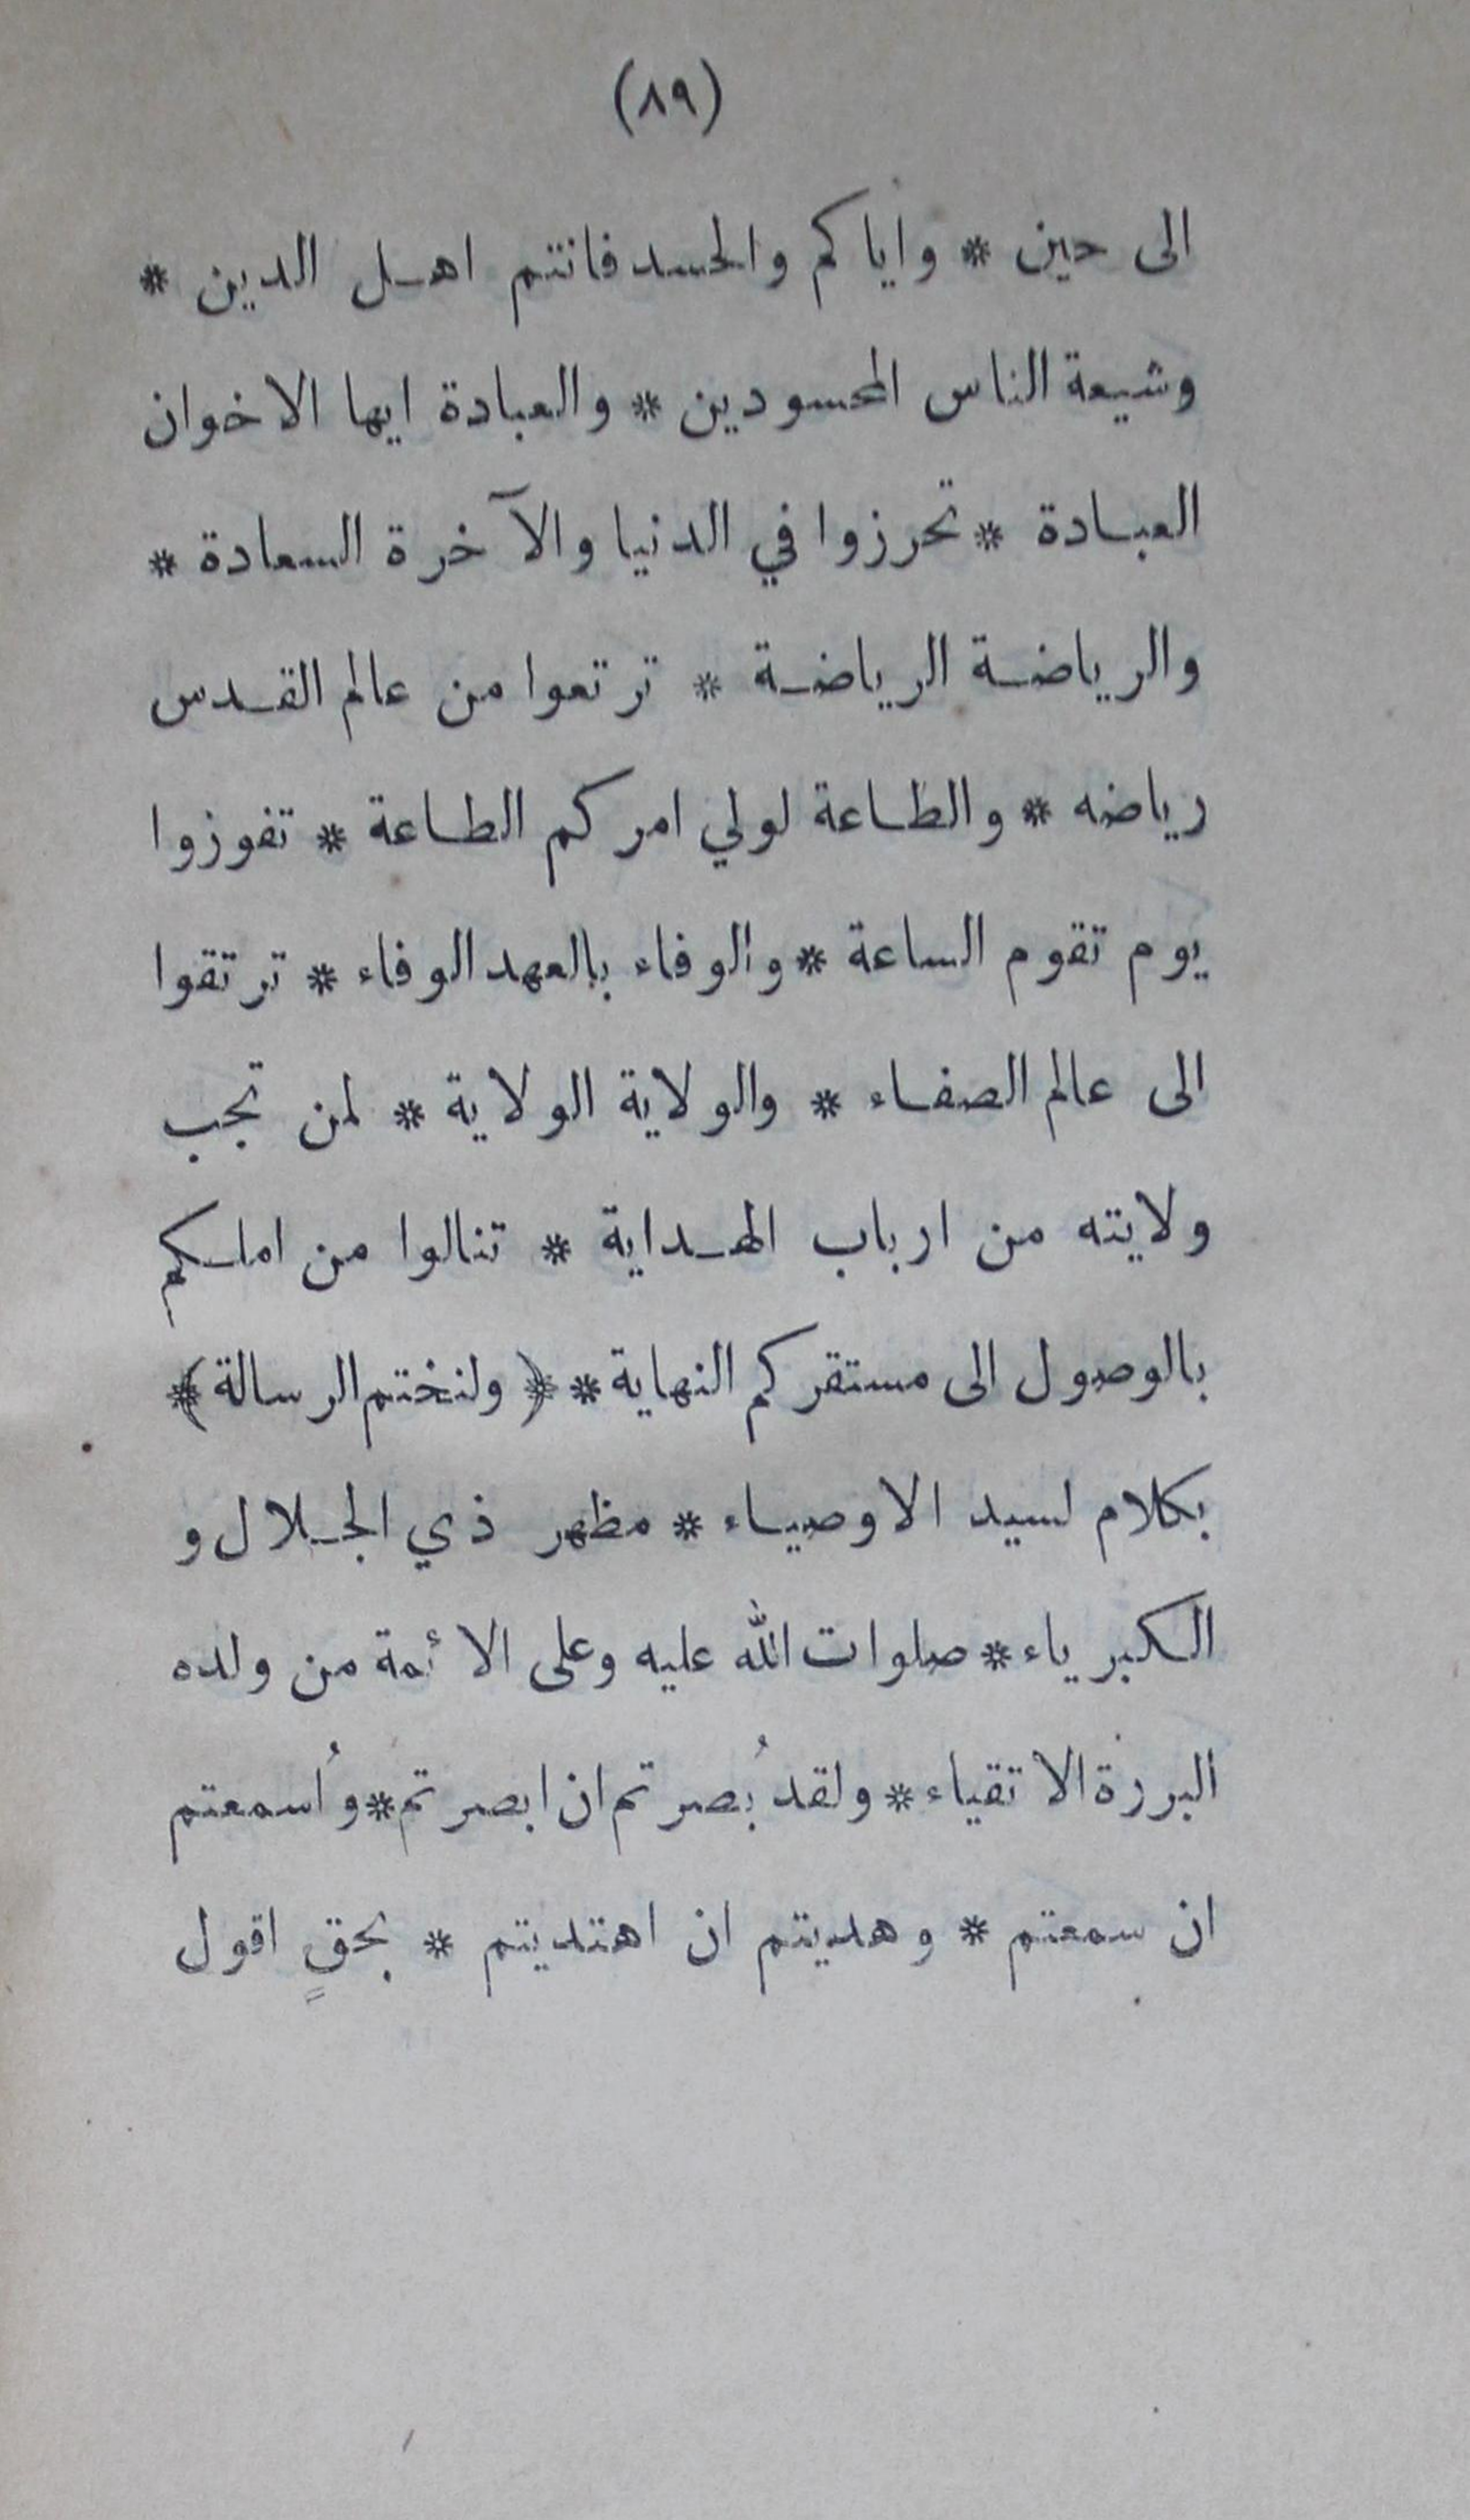 (٨٩)
الى حين * واياكم والحسد فانتم اهل الدين *
وشيعة الناس المحسودين * والعبادة ايها الاخوان
العبادة * تحرزوا في الدنيا والآخرة السعادة *
والرياضة الرياضة * ترتعوا من عالم القدس
رياضه * والطاعة لولي امركم الطاعة * تفوزوا
يوم تقوم الساعة * والوفاء بالعهد الوفاء * ترتقوا
الى عالم الصفاء * والولاية الولاية * لمن تجب
ولايته من ارباب الهداية * تنالوا من املكم
بالوصول الى مستقركم النهاية * ﴿ ولنختم الرسالة ﴾
بكلام لسيد الاوصياء * مظهر ذي الجلال و
الكبرياء * صلوات الله عليه وعلى الائمة من ولده
البررة الاتقياء * ولقد بُصرتم ان ابصرتم * واُسمعتم
ان سمعتم * وهديتم ان اهتديتم * بحقٍ اقول